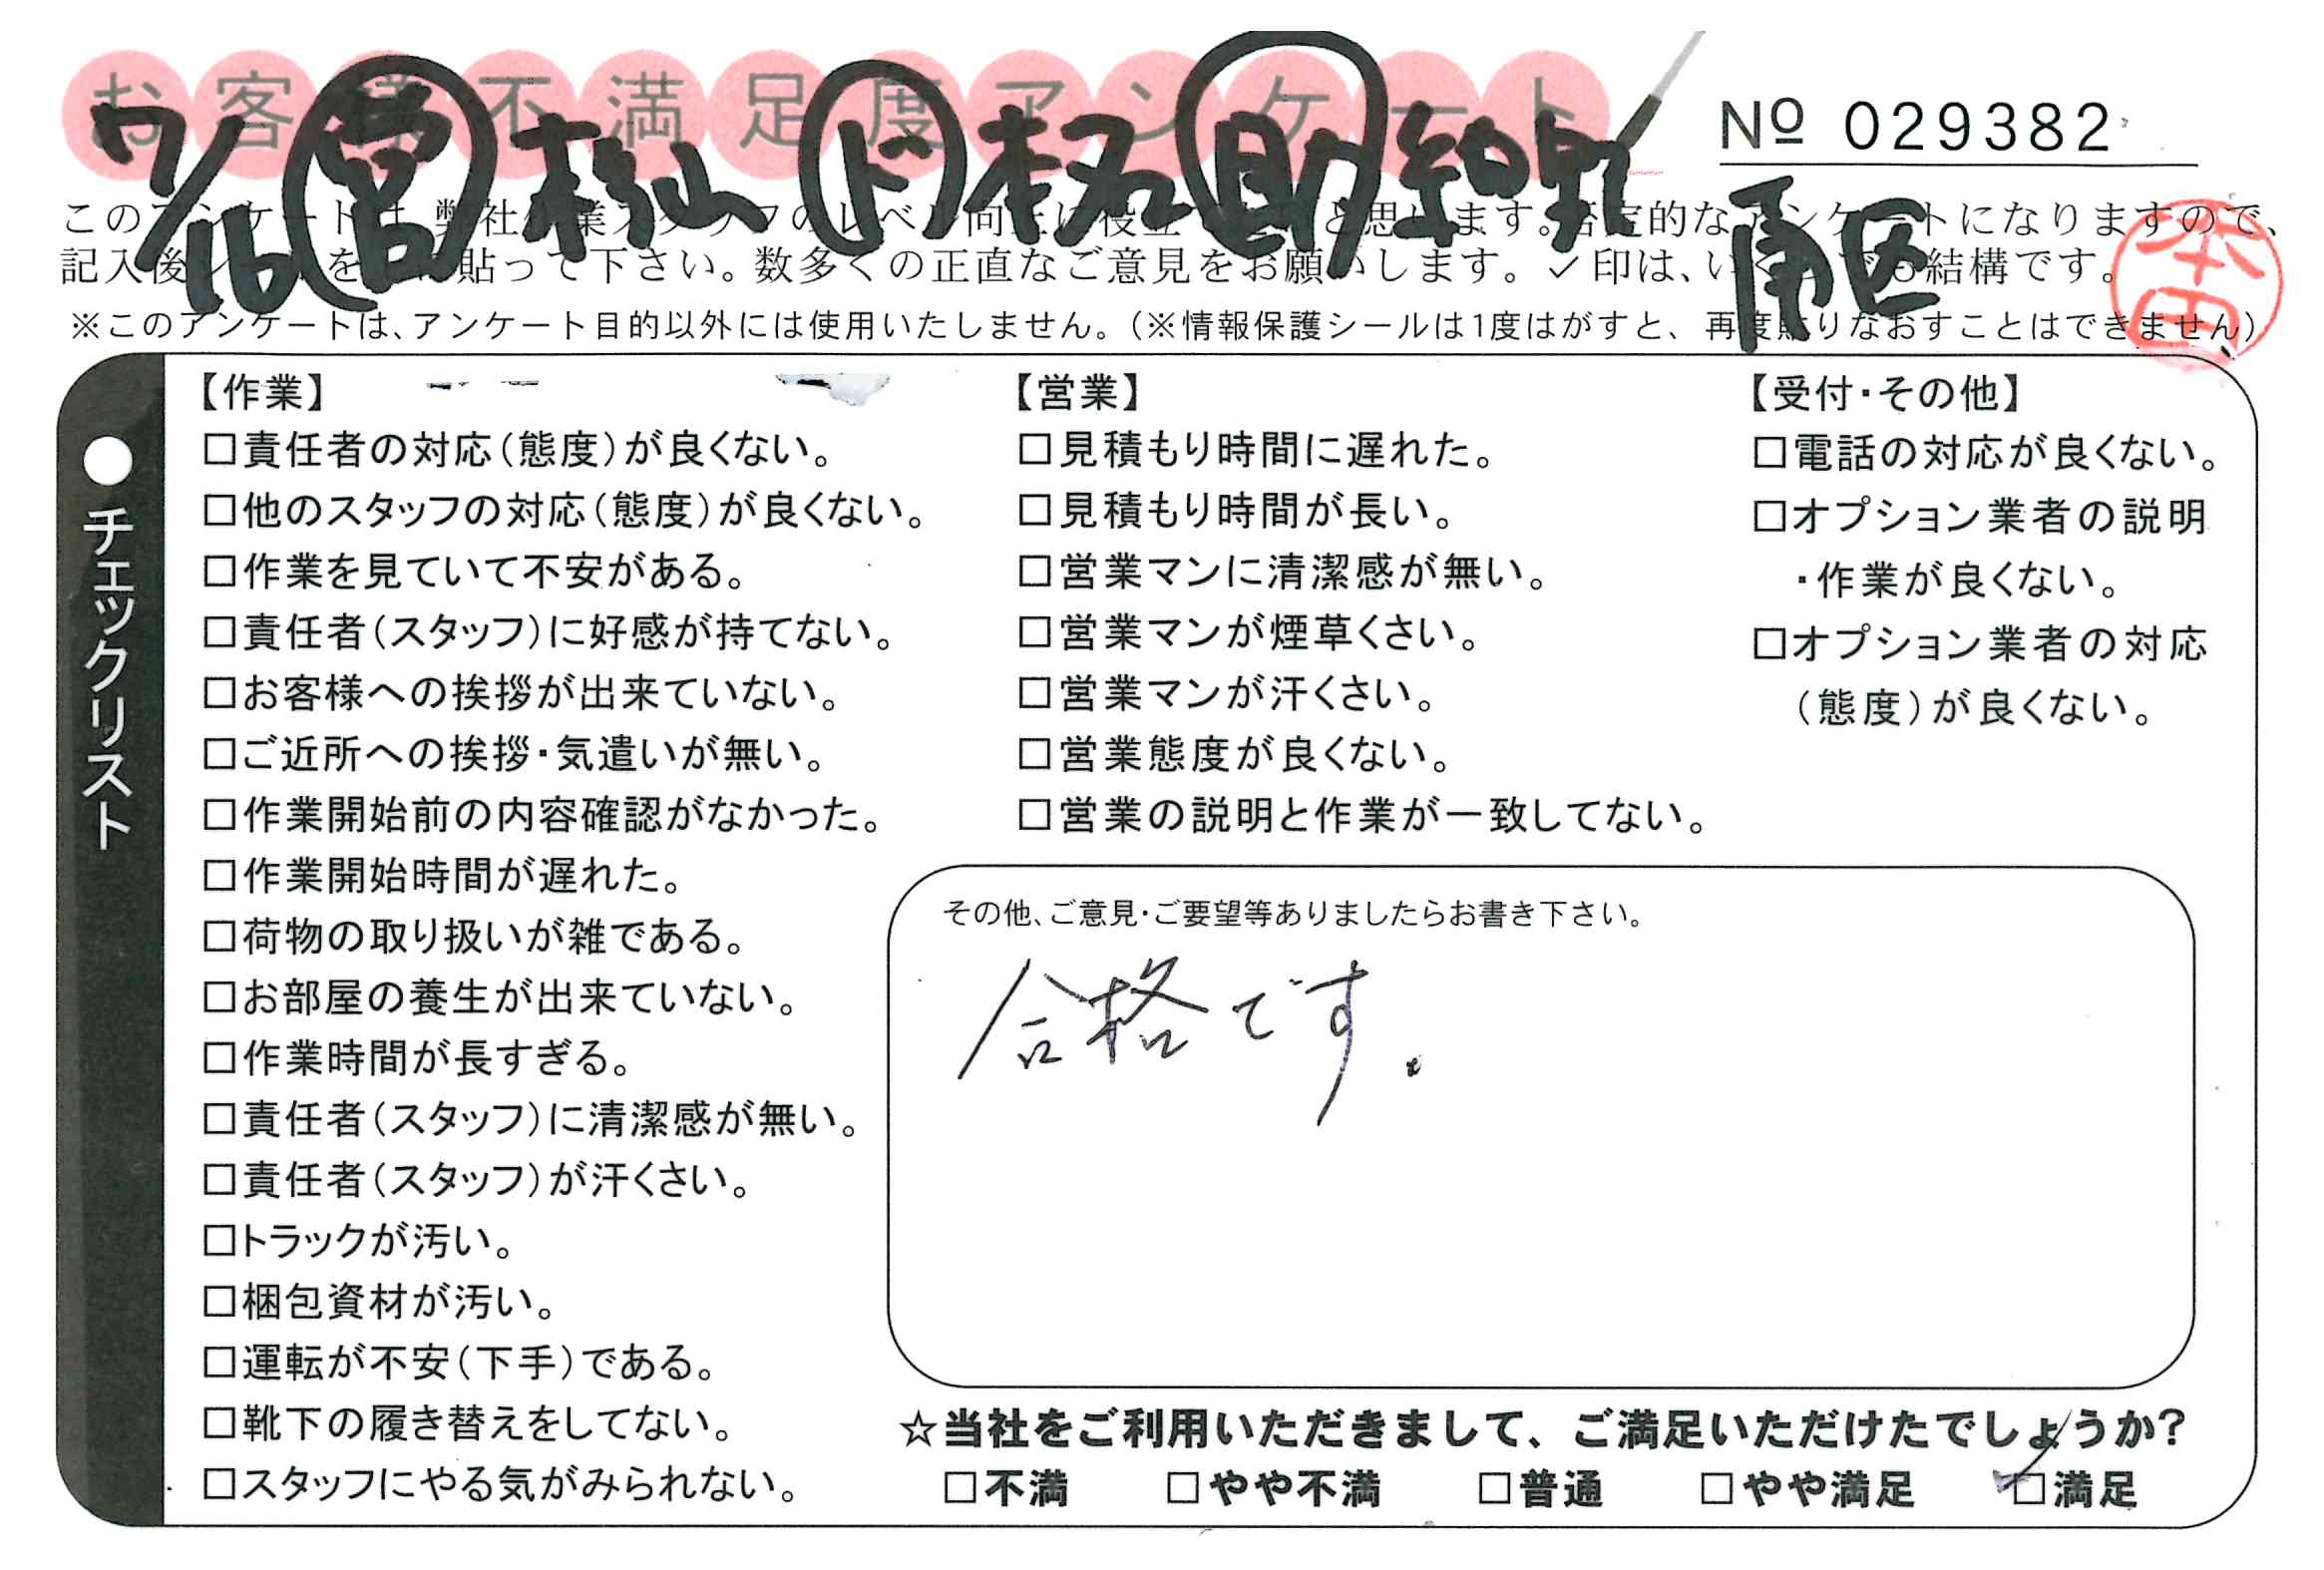 お客様不満足度アンケート
№ 029382
7/16 営 杉山 ド 助 南区
このアンケートは、弊社作業スタッフのレベル向上に役立 と思います。否定的なアンケートになりますので、
記入後シールを 貼って下さい。数多くの正直なご意見をお願いします。✓印は、いくつでも結構です。
※このアンケートは、アンケート目的以外には使用いたしません。(※情報保護シールは1度はがすと、再度貼りなおすことはできません)
●チェックリスト
【作業】
□責任者の対応(態度)が良くない。
□他のスタッフの対応(態度)が良くない。
□作業を見ていて不安がある。
□責任者(スタッフ)に好感が持てない。
□お客様への挨拶が出来ていない。
□ご近所への挨拶・気遣いが無い。
□作業開始前の内容確認がなかった。
□作業開始時間が遅れた。
□荷物の取り扱いが雑である。
□お部屋の養生が出来ていない。
□作業時間が長すぎる。
□責任者(スタッフ)に清潔感が無い。
□責任者(スタッフ)が汗くさい。
□トラックが汚い。
□梱包資材が汚い。
□運転が不安(下手)である。
□靴下の履き替えをしてない。
□スタッフにやる気がみられない。
【営業】
□見積もり時間に遅れた。
□見積もり時間が長い。
□営業マンに清潔感が無い。
□営業マンが煙草くさい。
□営業マンが汗くさい。
□営業態度が良くない。
□営業の説明と作業が一致してない。
【受付・その他】
□電話の対応が良くない。
□オプション業者の説明
・作業が良くない。
□オプション業者の対応
(態度)が良くない。
その他、ご意見・ご要望等ありましたらお書き下さい。
合格です.
☆当社をご利用いただきまして、ご満足いただけたでしょうか?
□不満 □やや不満 □普通 □やや満足 ☑満足